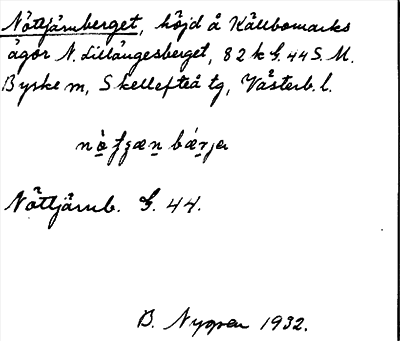 Nöttjärnberget, höjd å Källbomarks
ägor N. Lillängesberget, 82 k G. 44 S. M.
Byske sn, Skellefteå tg, Västerb. l.
Nöttjärnb. G. 44.
B. Nygren 1932.